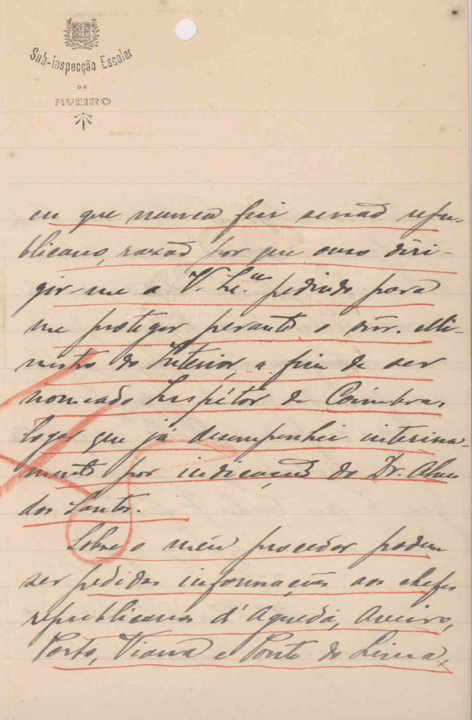 Sub-inspecção Escolar
DE
AVEIRO
eu que nunca fui senão repu-
blicano, razão por que ouso diri-
gir-me a V. Ex.ª pedindo para
me proteger perante o snr. Mi-
nistro do Interior, a fim de ser
nomeado Inspétor de Coimbra,
logar que já desempenhei interina-
mente por indicação do Dr. Alves
dos Santos.
Sobre o meu proceder podem
ser pedidas informações aos chefes
republicanos d'Agueda, Aveiro,
Porto, Viana e Ponte do Lima,